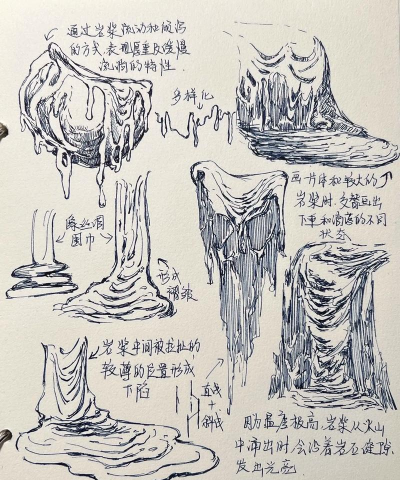 通过岩浆流动和倾泻
的方式,表现厚重及缓慢
流淌的特性.
多样化
画一片体积较大的
岩浆时,支蔓画出
下垂和滴落的不同
状态
像丝绸
围巾
形成
褶皱
岩浆中间被拉扯的
较薄的位置形成
下陷
直线
+
斜线
因为温度极高,岩浆从火山
中冲出时,会沿着岩石缝隙
发出光亮.